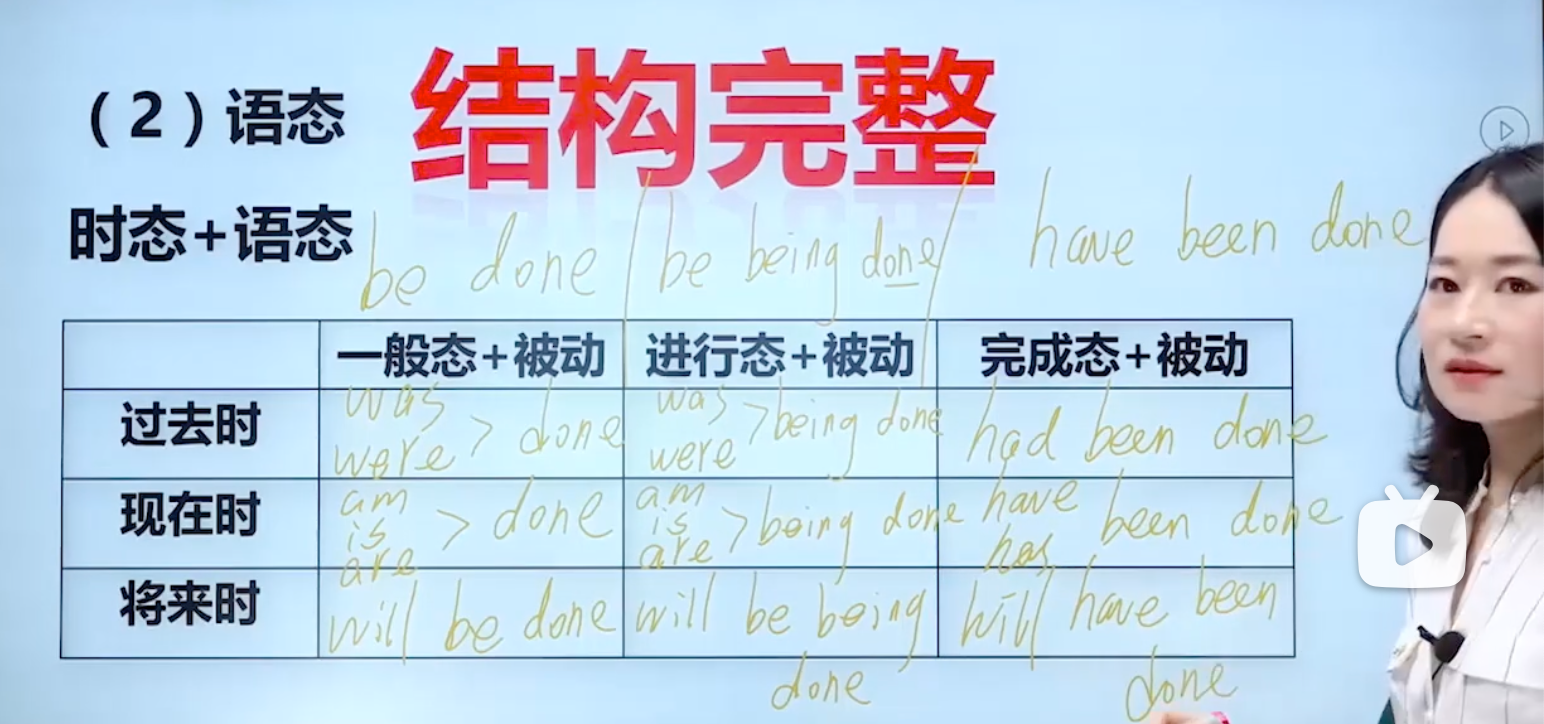 结构完整
（2）语态
时态+语态
be done / be being done / have been done
一般态+被动 进行态+被动 完成态+被动
过去时
was
were > done
was
were > being done
had been done
现在时
am
is
are > done
am
is
are > being done
have
has been done
将来时
will be done
will be being
done
will have been
done